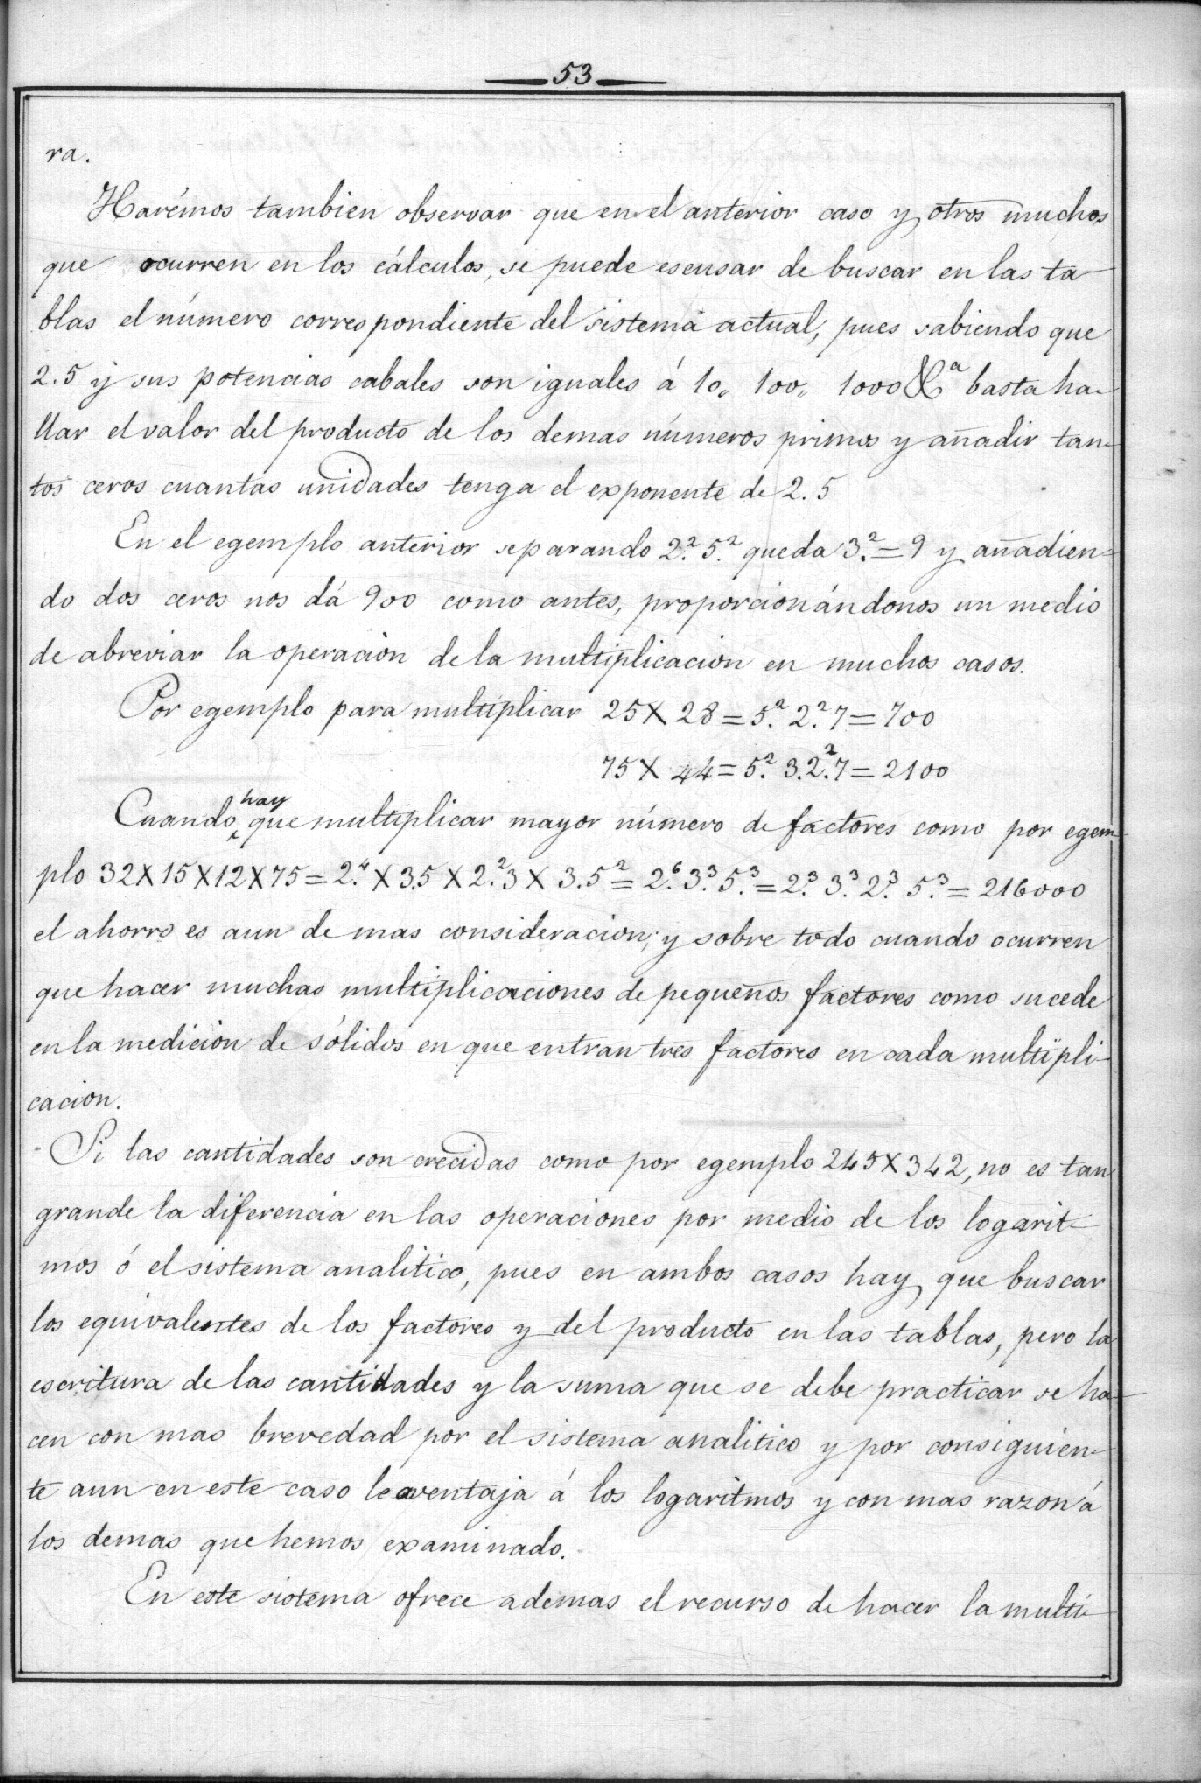 53
ra.
Harémos tambien observar que en el anterior caso y otros muchos
que ocurren en los cálculos, se puede escusar de buscar en las ta-
blas el número correspondiente del sistema actual, pues sabiendo que
2.5 y sus potencias cabales son iguales á 10,, 100,, 1000 &ª basta ha-
llar el valor del producto de los demas números primos y añadir tan-
tos ceros cuantas unidades tenga el exponente de 2.5
En el egemplo anterior separando 2.² 5.² queda 3.² = 9 y añadien-
do dos ceros nos dá 900 como antes, proporcionándonos un medio
de abreviar la operacion de la multiplicacion en muchos casos.
Por egemplo para multiplicar 25 X 28 = 5.² 2.² 7 = 700
75 X 44 = 5.² 3.2.² 7 = 2100
Cuando hay que multiplicar mayor número de factores como por egem-
plo 32 X 15 X 12 X 75 = 2.⁴ X 3.5 X 2.² 3 X 3.5² = 2.⁶ 3.³ 5.³ = 2.³ 3.³ 2.³ 5.³ = 216000
el ahorro es aun de mas consideracion; y sobre todo cuando ocurren
que hacer muchas multiplicaciones de pequeños factores como sucede
en la medicion de sólidos en que entran tres factores en cada multipli-
cacion.
Si las cantidades son crecidas como por egemplo 245 X 342, no es tan
grande la diferencia en las operaciones por medio de los logarit-
mos ó el sistema analitico, pues en ambos casos hay que buscar
los equivalentes de los factores y del producto en las tablas, pero la
escritura de las cantidades y la suma que se debe practicar se ha-
cen con mas brevedad por el sistema analitico y por consiguien-
te aun en este caso le aventaja á los logaritmos y con mas razon á
los demas que hemos examinado.
En este sistema ofrece ademas el recurso de hacer la multi-